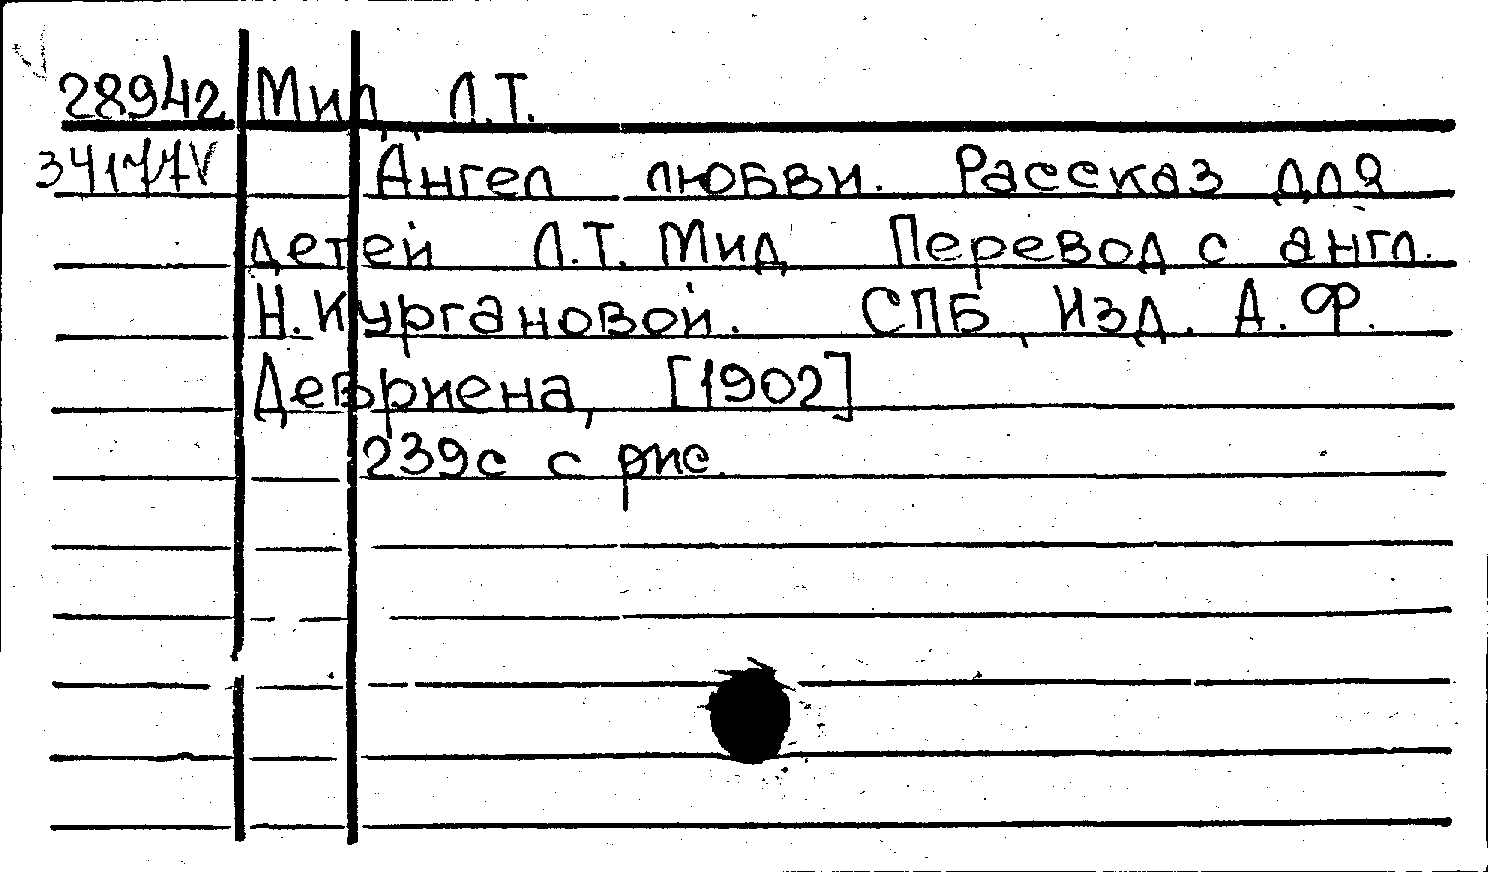 28942 Мид, Л.Т.
34177V Ангел любви. Рассказ для
детей Л.Т. Мид Перевод с англ.
Н. Кургановой. СПБ, Изд. А. Ф.
Девриена, [1902]
239с с рис.